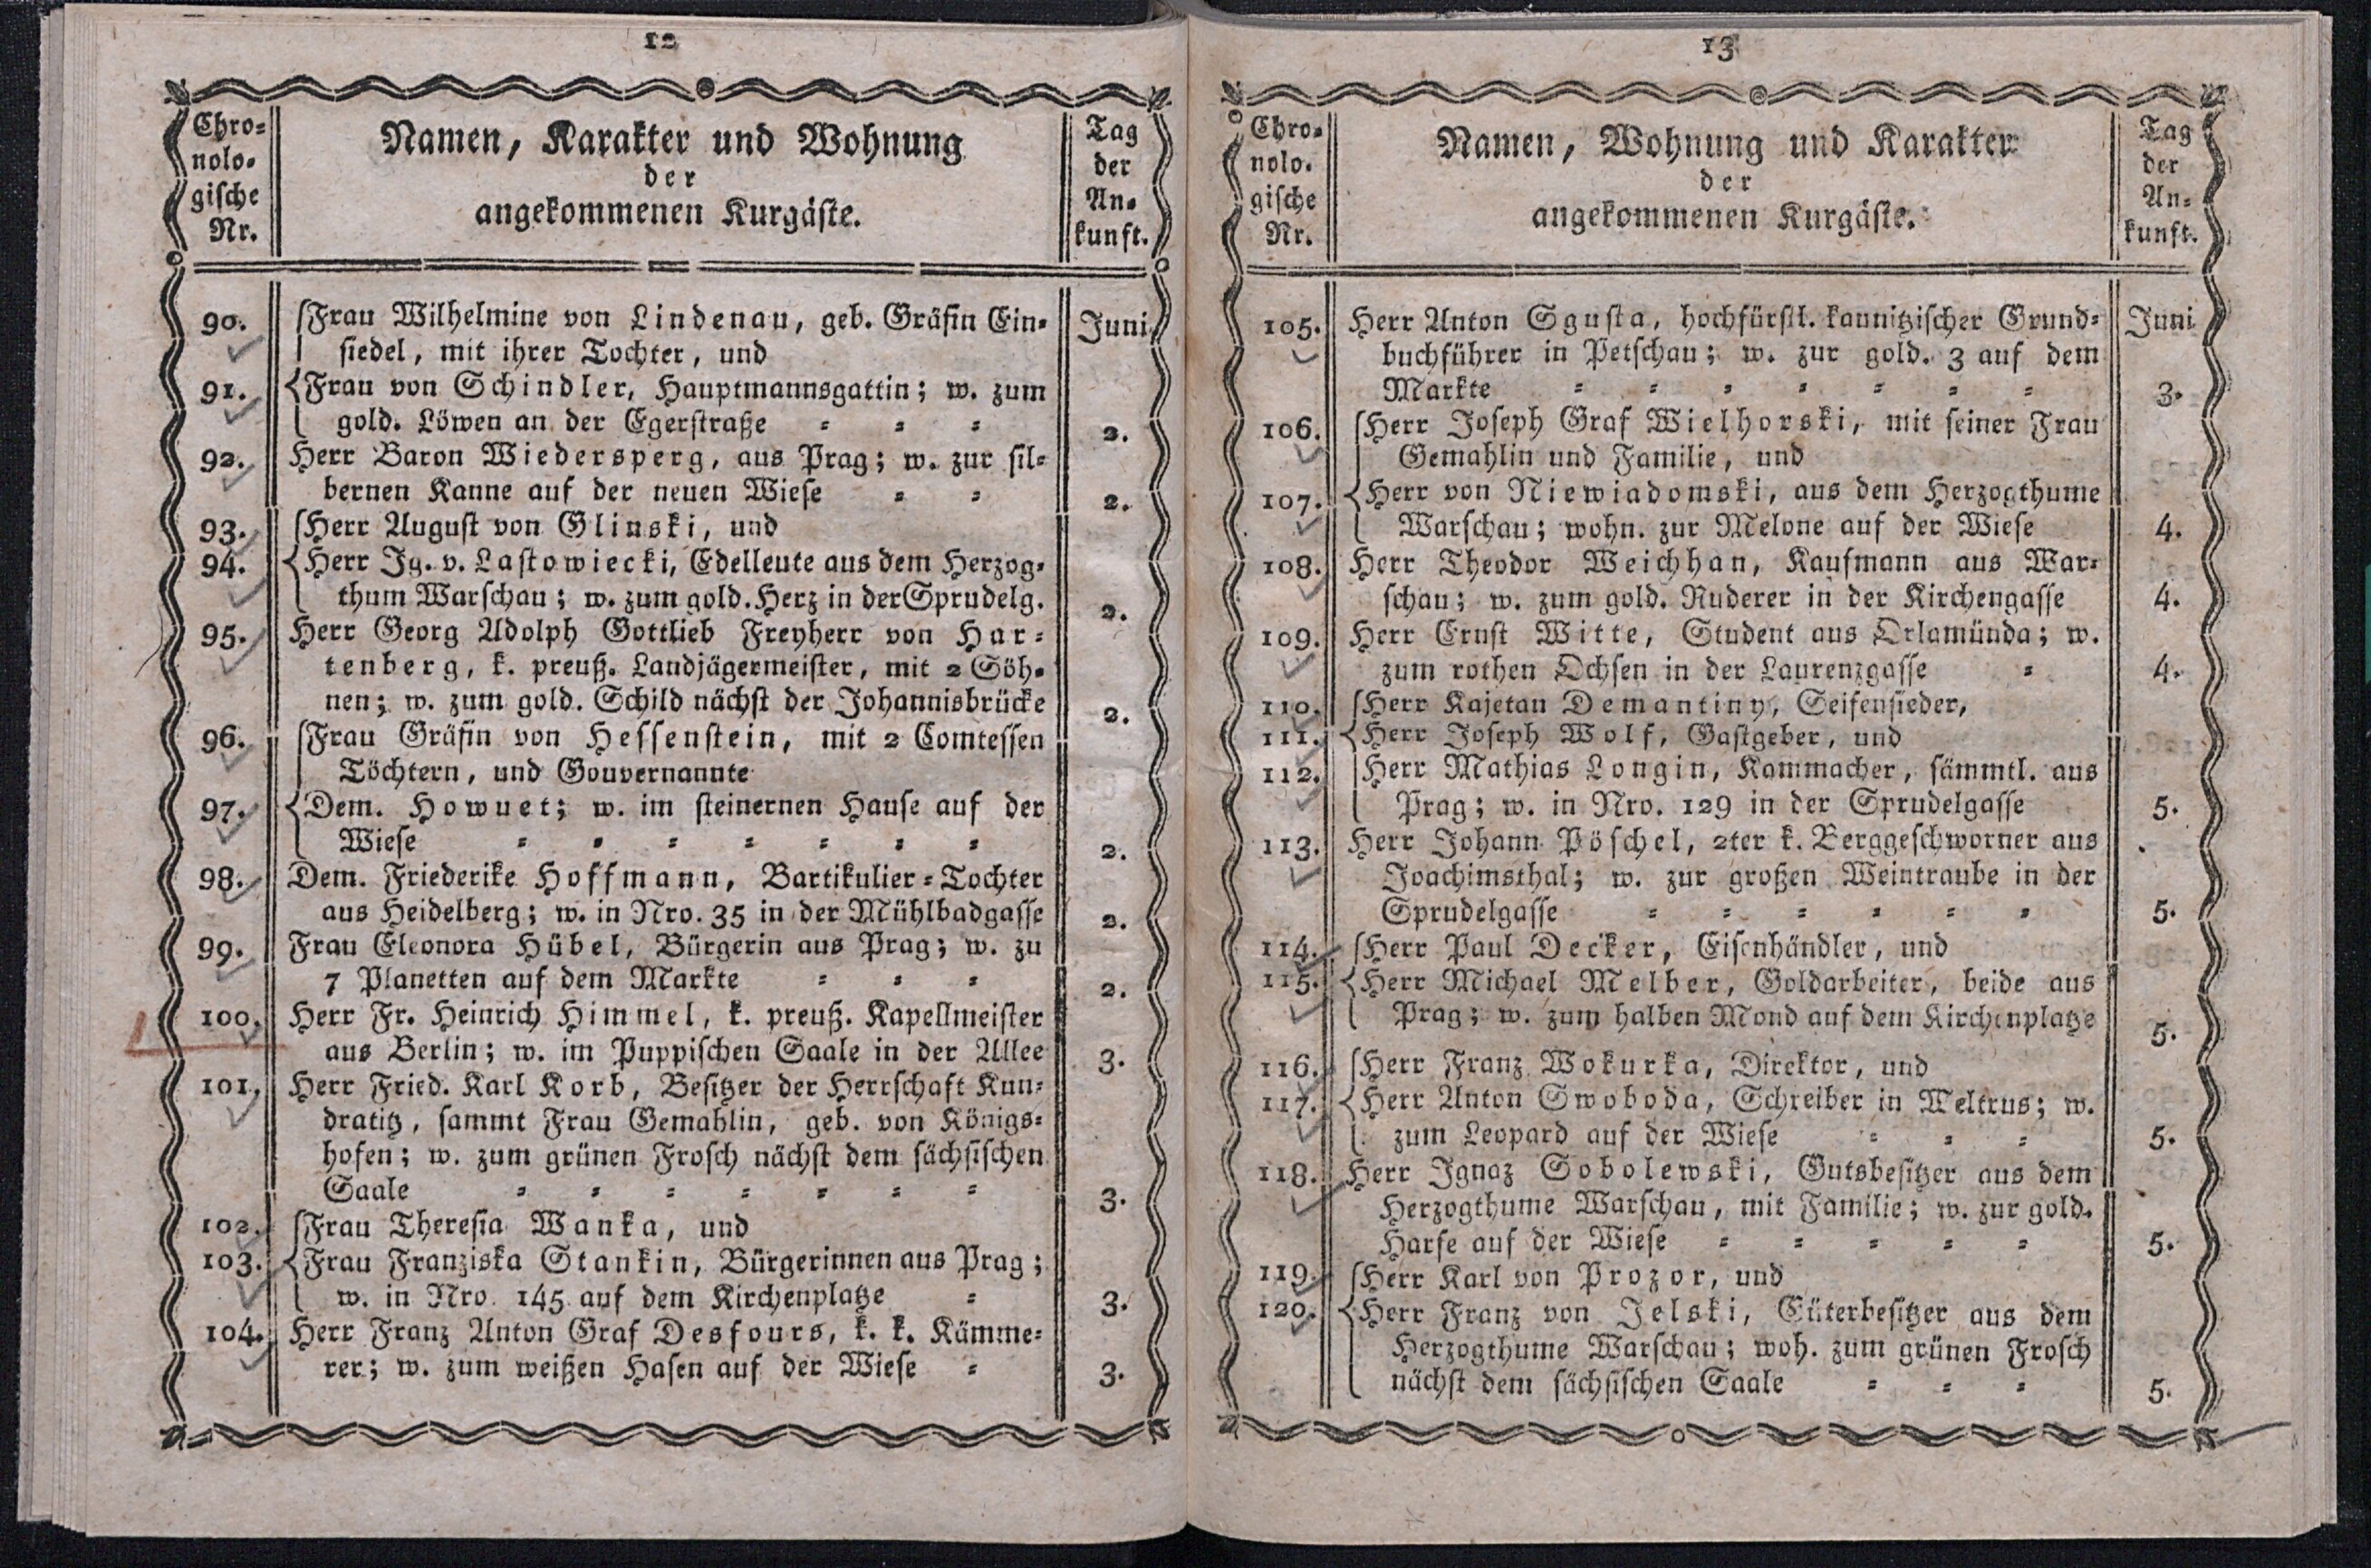 12
Chro-
nolo-
gische
Nr.
Namen, Karakter und Wohnung
der
angekommenen Kurgäste.
Tag
der
An-
kunft.
90. Frau Wilhelmine von Lindenau, geb. Gräfin Ein- Juni
siedel, mit ihrer Tochter, und
91. Frau von Schindler, Hauptmannsgattin; w. zum
gold. Löwen an der Egerstraße - - - 2.
92. Herr Baron Wiedersperg, aus Prag; w. zur sil-
bernen Kanne auf der neuen Wiese - - 2.
93. Herr August von Glinski, und
94. Herr Ig. v. Lastowiecki, Edelleute aus dem Herzog-
thum Warschau; w. zum gold. Herz in der Sprudelg. 2.
95. Herr Georg Adolph Gottlieb Freyherr von Har-
tenberg, k. preuß. Landjägermeister, mit 2 Söh-
nen; w. zum gold. Schild nächst der Johannisbrücke 2.
96. Frau Gräfin von Hessenstein, mit 2 Comtessen
Töchtern, und Gouvernannte
97. Dem. Howuet; w. im steinernen Hause auf der
Wiese - - - - - - - 2.
98. Dem. Friederike Hoffmann, Bartikulier-Tochter
aus Heidelberg; w. in Nro. 35 in der Mühlbadgasse 2.
99. Frau Eleonora Hübel, Bürgerin aus Prag; w. zu
7 Planetten auf dem Markte - - - 2.
100. Herr Fr. Heinrich Himmel, k. preuß. Kapellmeister
aus Berlin; w. im Puppischen Saale in der Allee 3.
101. Herr Fried. Karl Korb, Besitzer der Herrschaft Kun-
dratitz, sammt Frau Gemahlin, geb. von Königs-
hofen; w. zum grünen Frosch nächst dem sächsischen
Saale - - - - - - - 3.
102. Frau Theresia Wanka, und
103. Frau Franziska Stankin, Bürgerinnen aus Prag;
w. in Nro. 145 auf dem Kirchenplatze - 3.
104. Herr Franz Anton Graf Desfours, k. k. Kämme-
rer; w. zum weißen Hasen auf der Wiese - 3.
13
Chro-
nolo.
gische
Nr.
Namen, Wohnung und Karakter
der
angekommenen Kurgäste.
Tag
der
An-
kunft.
105. Herr Anton Sgusta, hochfürstl. kaunitzischer Grund- Juni
buchführer in Petschau; w. zur gold. 3 auf dem
Markte - - - - - - - 3.
106. Herr Joseph Graf Wielhorski, mit seiner Frau
Gemahlin und Familie, und
107. Herr von Niewiadomski, aus dem Herzogthume
Warschau; wohn. zur Melone auf der Wiese 4.
108. Herr Theodor Weichhan, Kaufmann aus War-
schau; w. zum gold. Ruderer in der Kirchengasse 4.
109. Herr Ernst Witte, Student aus Orlamünda; w.
zum rothen Ochsen in der Laurenzgasse - 4.
110. Herr Kajetan Demantiny, Seifensieder,
111. Herr Joseph Wolf, Gastgeber, und
112. Herr Mathias Longin, Kammacher, sämmtl. aus
Prag; w. in Nro. 129 in der Sprudelgasse 5.
113. Herr Johann Pöschel, 2ter k. Berggeschworner aus
Joachimsthal; w. zur großen Weintraube in der
Sprudelgasse - - - - - - 5.
114. Herr Paul Decker, Eisenhändler, und
115. Herr Michael Melber, Goldarbeiter, beide aus
Prag; w. zum halben Mond auf dem Kirchenplatze 5.
116. Herr Franz Wokurka, Direktor, und
117. Herr Anton Swoboda, Schreiber in Meltrus; w.
zum Leopard auf der Wiese - - - 5.
118. Herr Ignaz Sobolewski, Gutsbesitzer aus dem
Herzogthume Warschau, mit Familie; w. zur gold.
Harfe auf der Wiese - - - - - 5.
119. Herr Karl von Prozor, und
120. Herr Franz von Jelski, Güterbesitzer aus dem
Herzogthume Warschau; woh. zum grünen Frosch
nächst dem sächsischen Saale - - - 5.